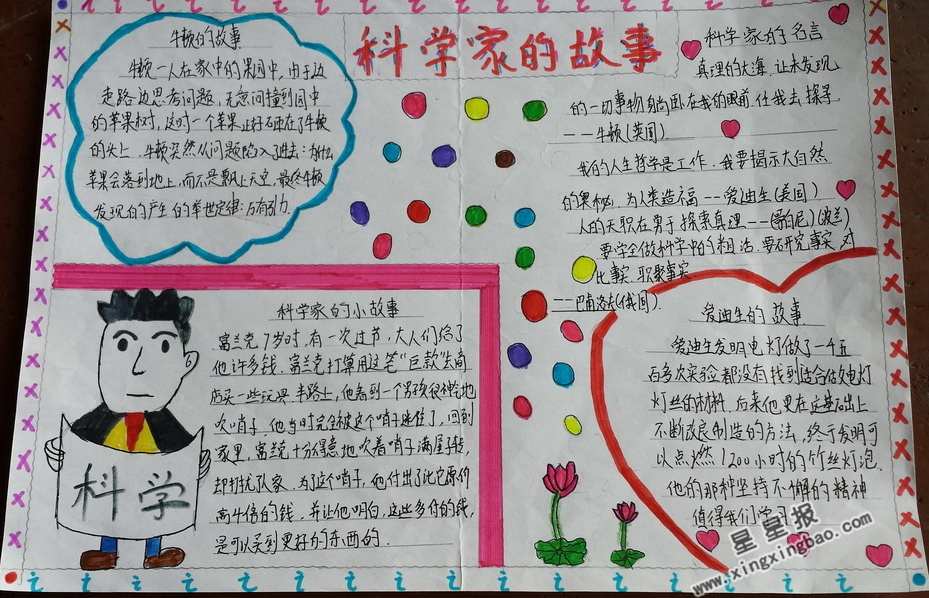 科学家的故事
牛顿的故事
牛顿一人在家中的果园中,由于边
走路边思考问题,无意间撞到园中
的苹果树,这时一个苹果正好砸在了牛顿
的头上,牛顿突然从问题陷入了进去:为什么
苹果会落到地上,而不是飘上天空,最终牛顿
发现的产生的举世定律:万有引力.
科学家的名言
真理的大海,让未发现
的一切事物身尚卧在我的眼前,任我去探寻.
——牛顿(英国)
我的人生哲学是工作,我要揭示大自然
的奥秘,为人类造福——爱迪生(美国)
人的天职在勇于探索真理——(哥白尼)(波兰)
要学会做科学中的粗活,要研究事实,对
比事实,积聚事实
——巴甫洛夫(俄国)
科学家的小故事
富兰克7岁时,有一次过节,大人们给了
他许多钱.富兰克打算用这笔“巨款”去商
店买一些玩具.半路上,他看到一个男孩很神给地
吹哨子,他当时完全被这个哨子迷住了,回到
家里,富兰克十分得意地吹着哨子满屋子转,
却打扰队家.为这个哨子,他付出了比它原价
高牛倍的钱.并让他明白,这些多付的钱,
是可以买到更好的东西的.
科学
爱迪生的故事
爱迪生发明电灯做了一千五
百多次实验都没有找到适合做电灯
灯丝的材料,后来他更在这基础上
不断改良制造的方法,终于发明可
以点燃1200小时的竹丝灯泡.
他的那种坚持不懈的精神
值得我们学习
星星报
www.xingxingbao.com